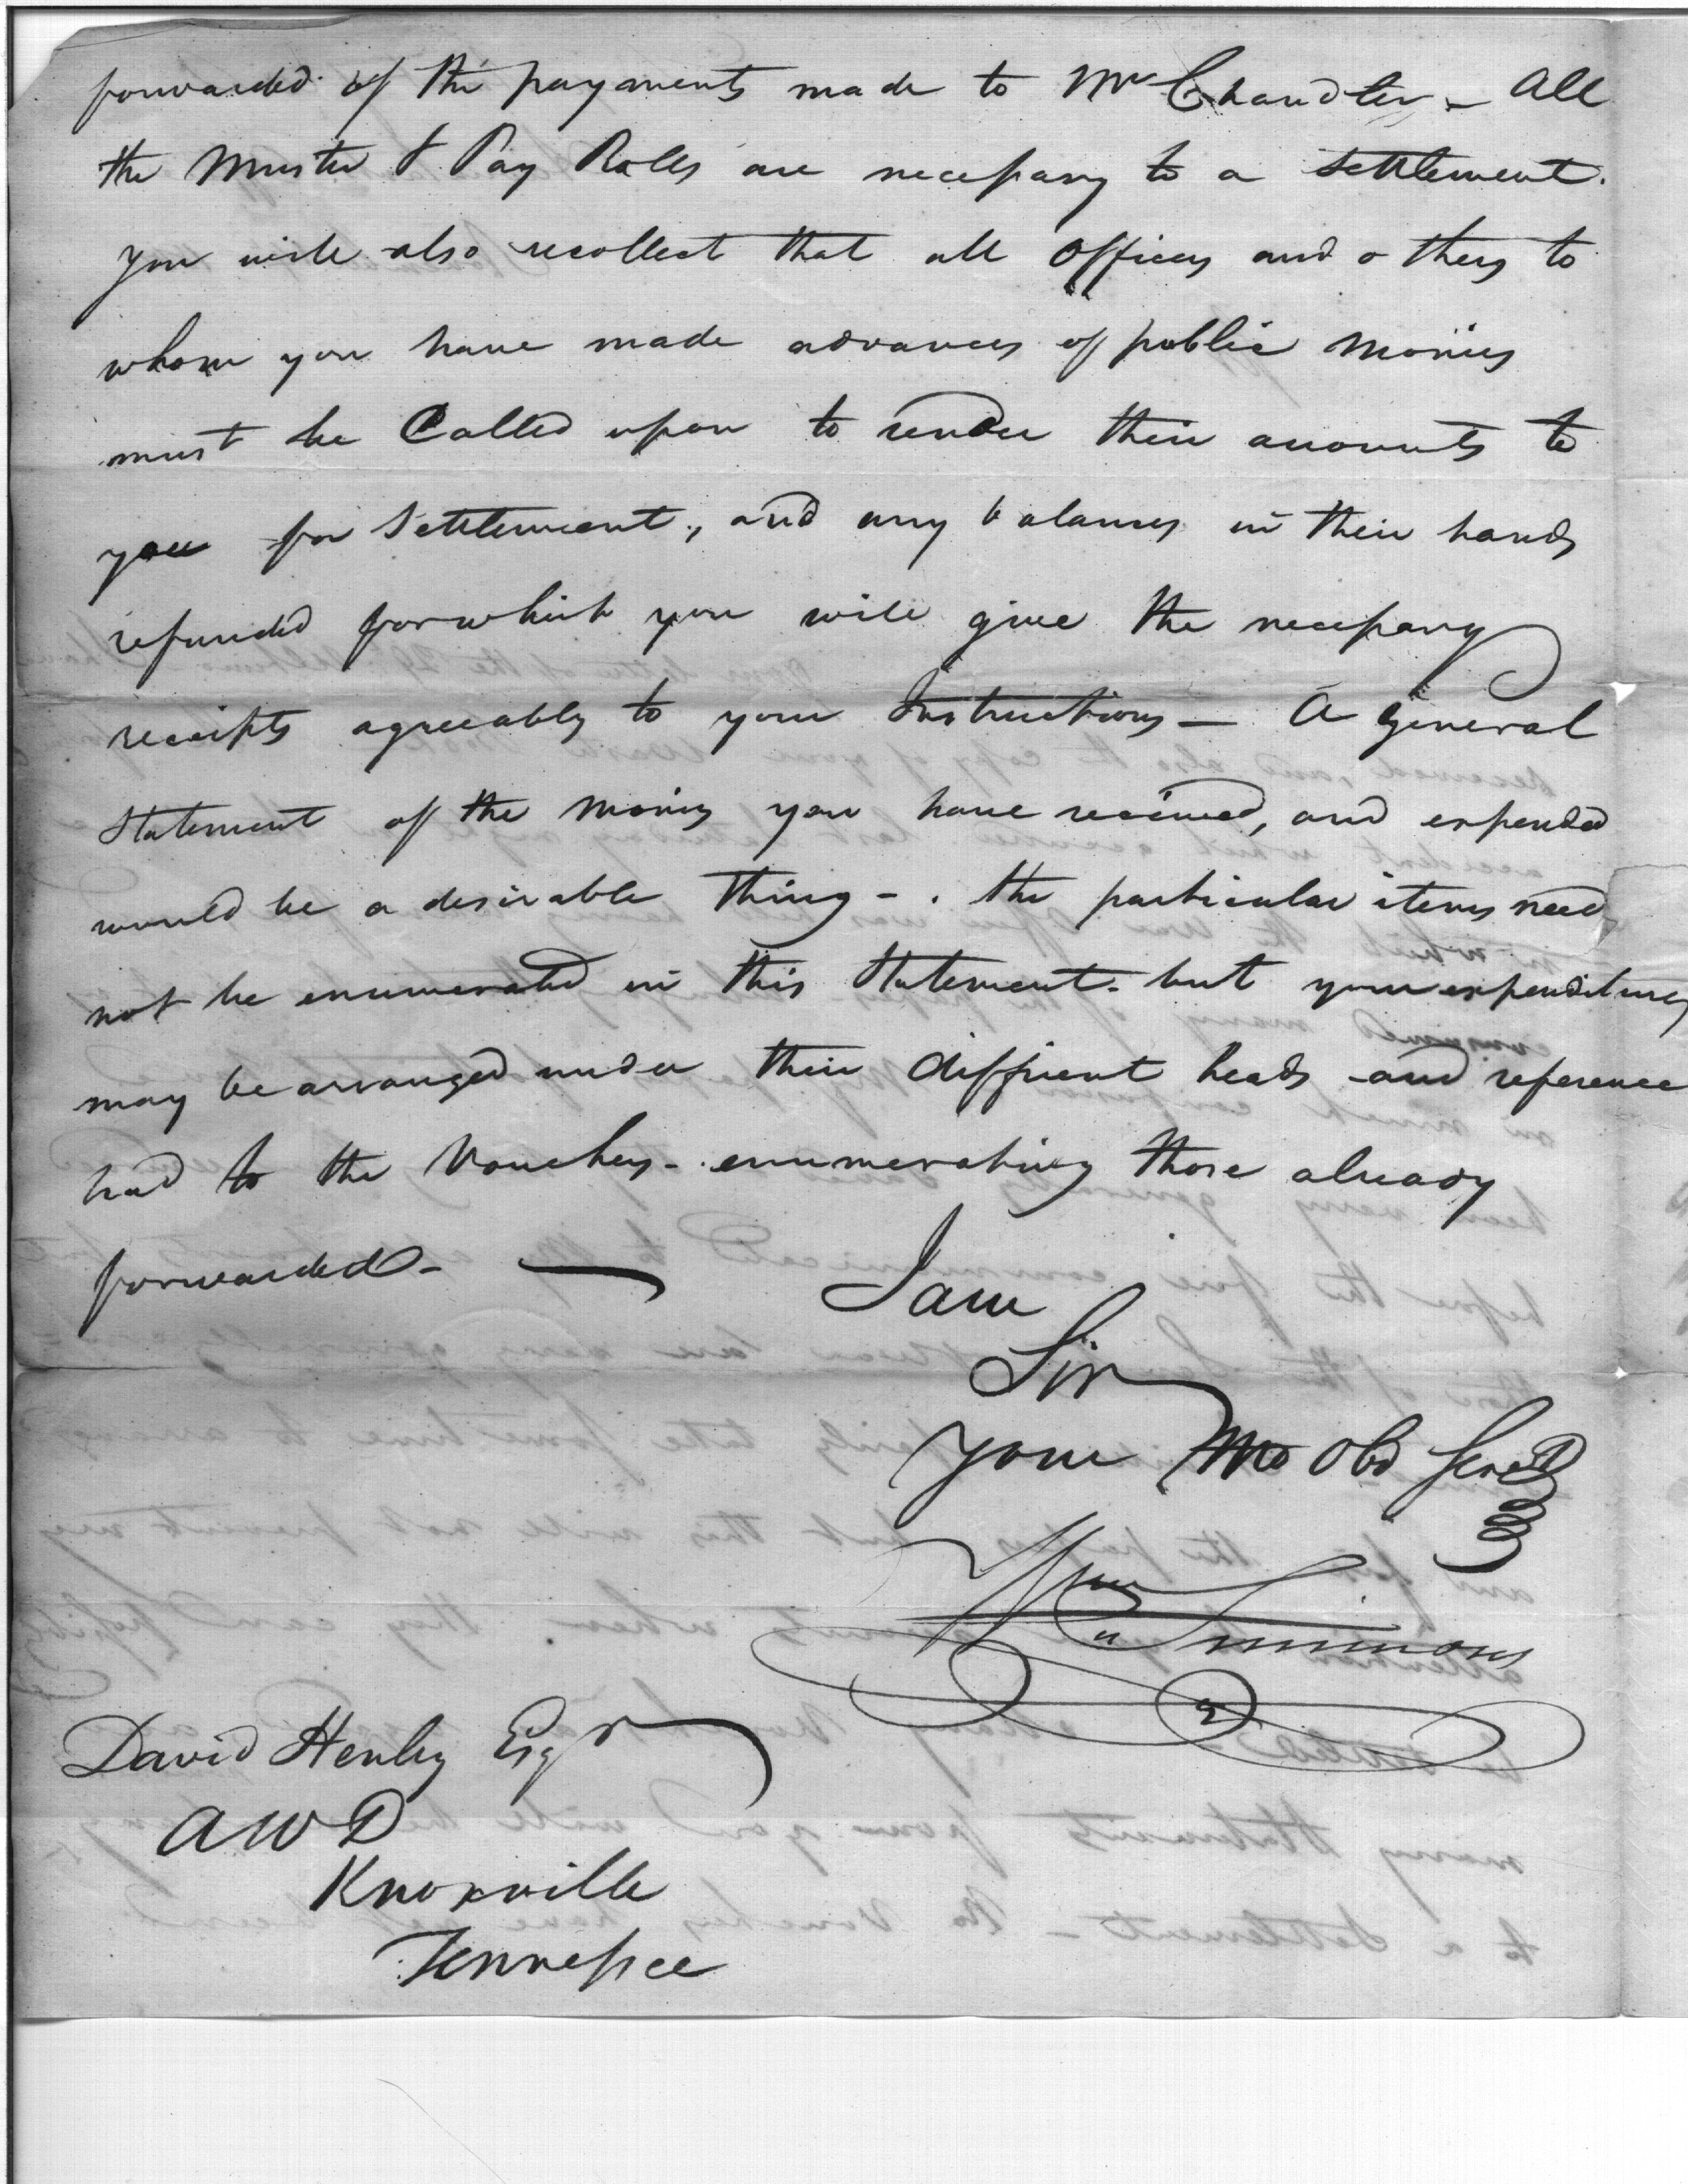 forwarded of the payments made to Mr Chandler – All
the Muster & Pay Rolls are necessary to a settlement.
you will also recollect that all officers and others to
whom you have made advances of public Monies
must be Called upon to render their accounts to
you for settlement, and any balances in their hands
refunded for which you will give the necessary
receipts agreeably to your Instructions – A general
Statement of the Monies you have received, and expended
would be a desirable thing – . the particular items need
not be enumerated in this Statement – but your expenditures
may be arranged under their different heads and reference
had to the Vouchers – enumerating those already
forwarded – 
I am
Sir
Your Mo Obd Servt
Wm Simmons
David Henley Esqr
A W D
Knoxville
Tennessee